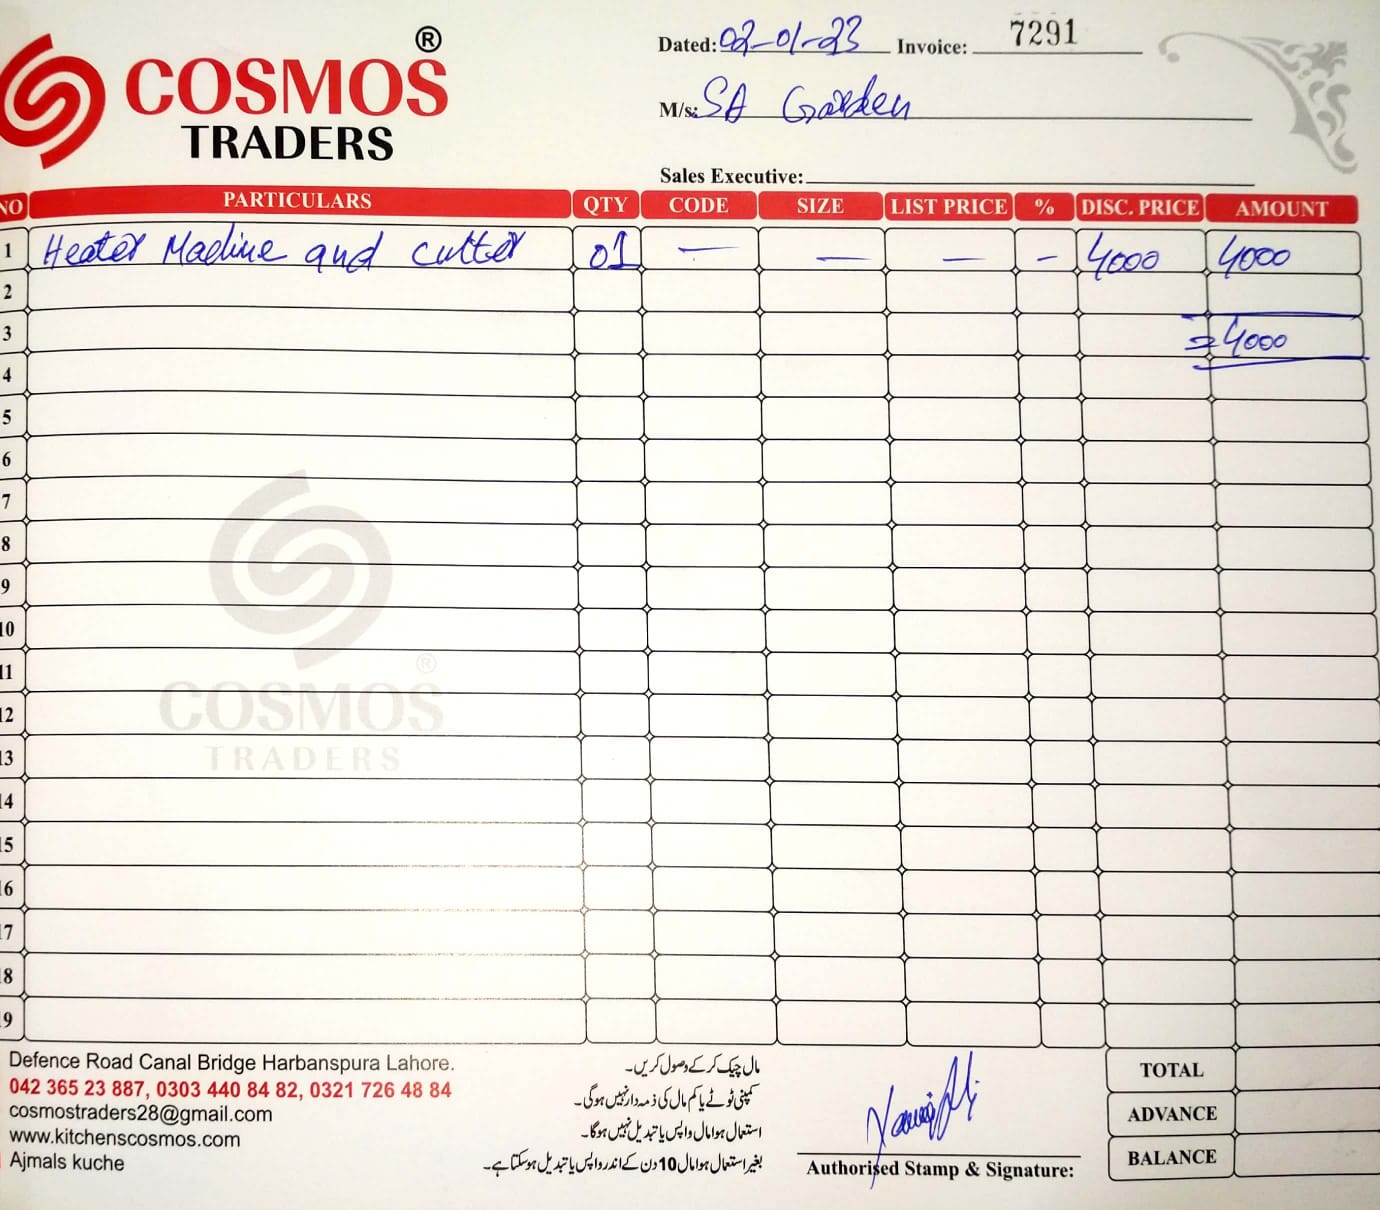 ®
COSMOS
TRADERS
Dated: 02-01-23 Invoice: 7291
M/s: SA Garden
Sales Executive:
NO PARTICULARS QTY CODE SIZE LIST PRICE % DISC. PRICE AMOUNT
1 Heater Machine and cutter 01 — — — - 4000 4000
2
3 = 4000
4
5
6
7
8
9
10
11
12
13
14
15
16
17
18
19
®
COSMOS
TRADERS
Defence Road Canal Bridge Harbanspura Lahore.
042 365 23 887, 0303 440 84 82, 0321 726 48 84
cosmostraders28@gmail.com
www.kitchenscosmos.com
Ajmals kuche
مال چیک کر کے وصول کریں۔
کمپنی ٹوٹے یا کم مال کی ذمہ دار نہیں ہوگی۔
استعمال ہوا مال واپس یا تبدیل نہیں ہوگا۔
بغیر استعمال ہوا مال 10 دن کے اندر واپس یا تبدیل ہو سکتا ہے۔
Authorised Stamp & Signature:
TOTAL
ADVANCE
BALANCE